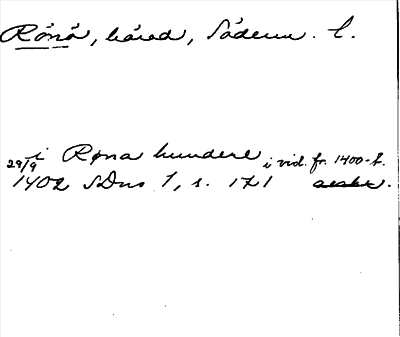 Rönö, härad, Söderm. l.
i Røna hundere i vid. fr. 1400-t.
29/9 1402 SDns 1, s. 171